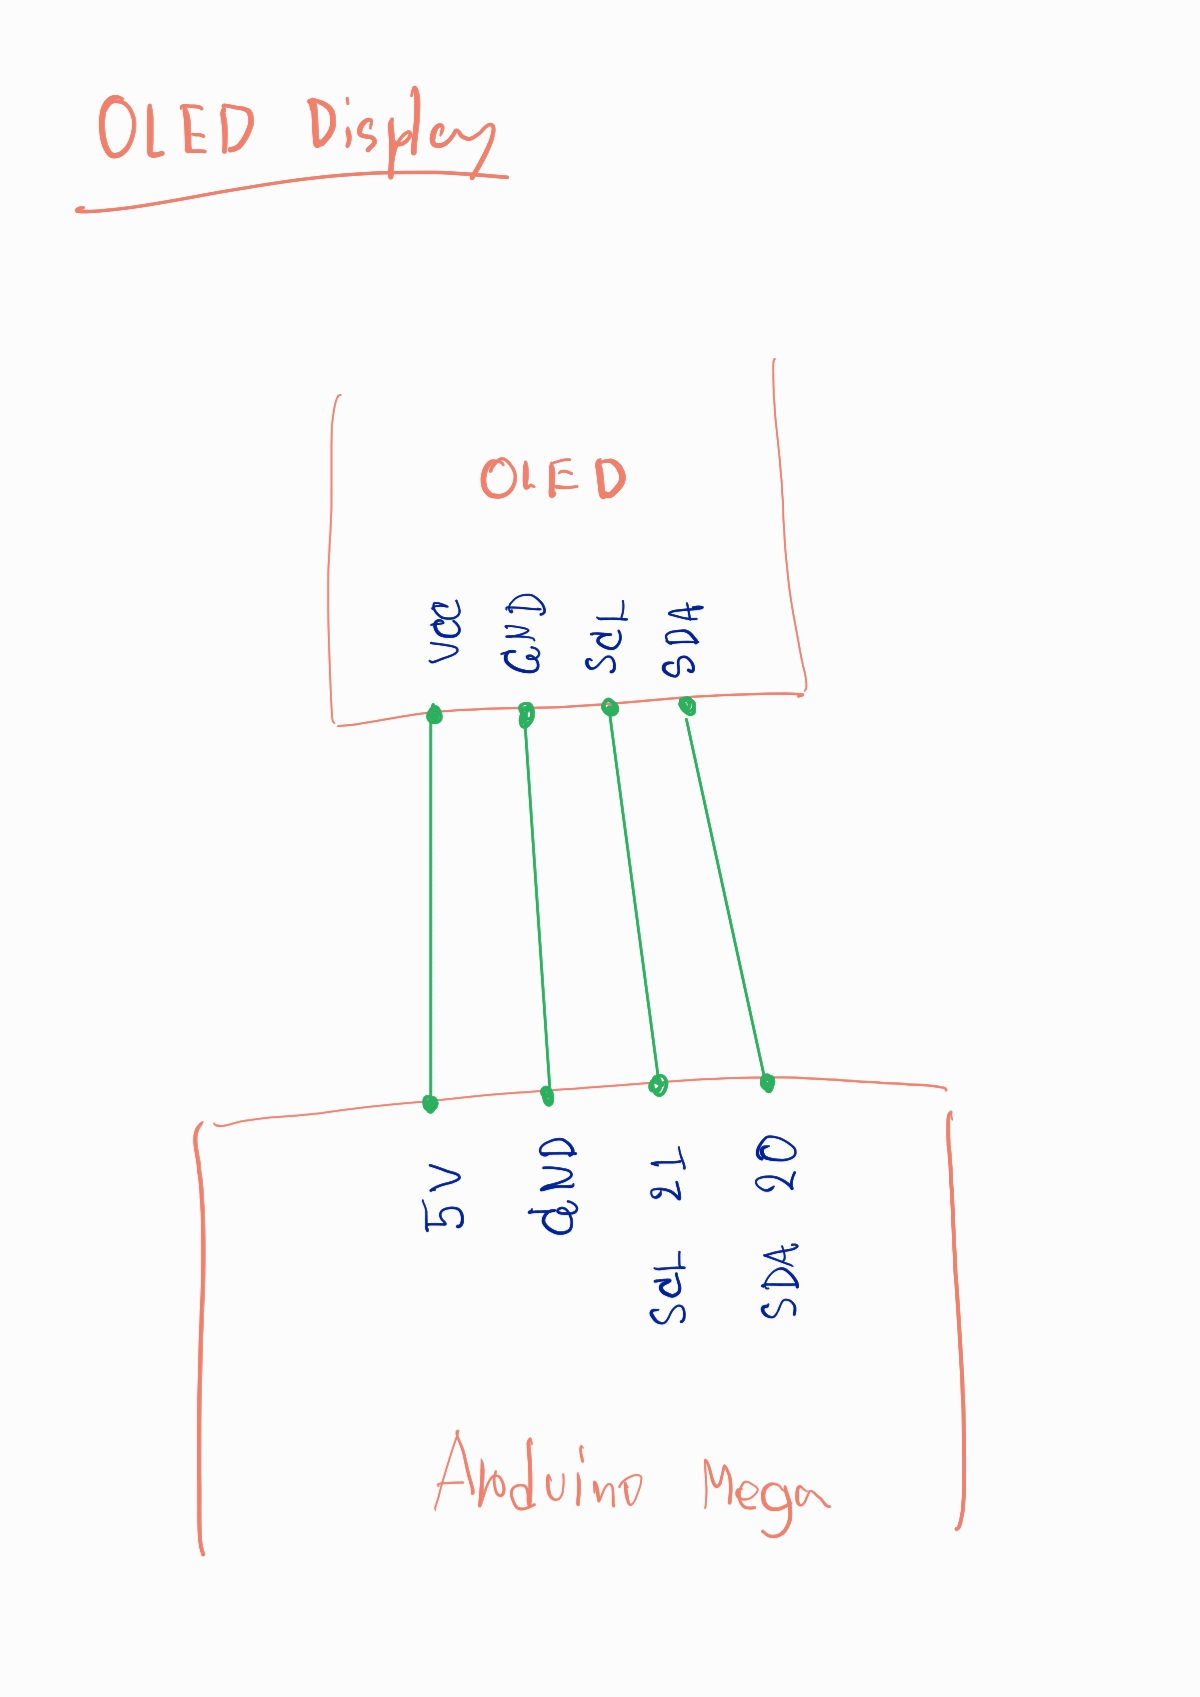 OLED Display
OLED
VCC GND SCL SDA
5V GND SCL 21 SDA 20
Arduino Mega